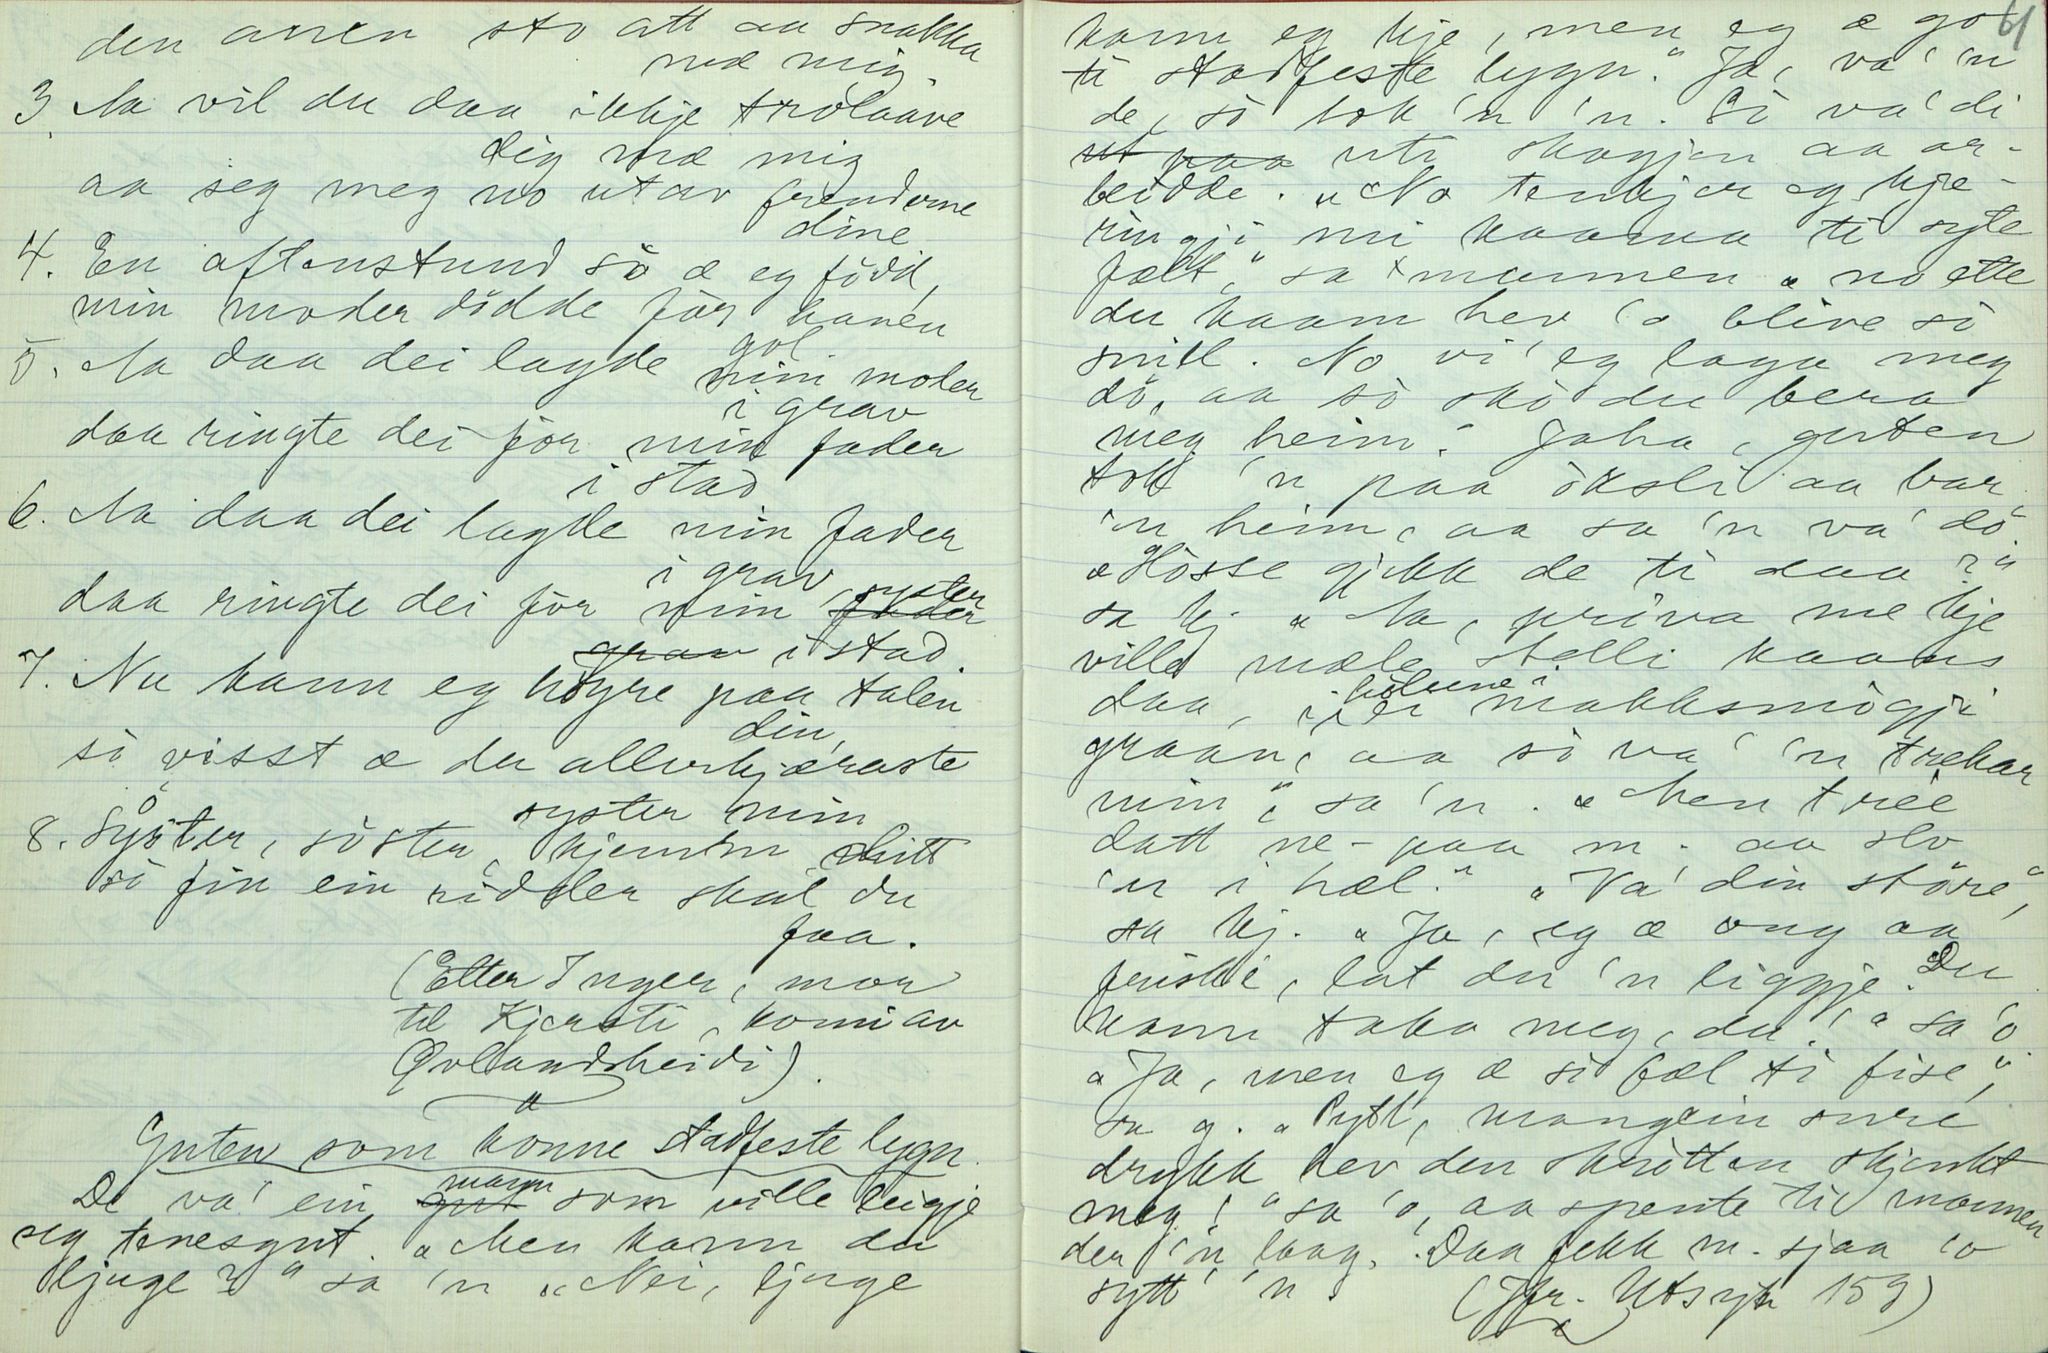 den anen sto att aa snakka
mæ mig.
3. Aa vil du daa ikkje trolaave
dig mæ mig
aa seg meg no utav frenderne
dine
4. En aftenstund så æ eg född,
min moder dödde för hanen
gol
5. Aa daa dei lagde min moder
i grav
daa ringte dei for min fader
i stad
6. Aa daa dei lagde min fader
i grav
daa ringte dei for min syster
i stad.
7. Nu kann eg högre paa talen
din,
så visst æ du allerkjæraste
syster min
8. Syster, söster, kjemm
så fin ein ridder skal du
faa.
(Etter Inger, mor
til Kjersti, komi av
Ørlandsheidi).
Guten som konne stadfeste lygn.
De va' ein mann som ville leigje
seg tenesgut. „Men kann du
ljuge?" sa 'n „Nei, ljuge
61
kann eg kje, men eg æ go
ti stadfeste lygn." Ja, va' 'n
de, så tok 'n 'n. Så va' di
ut paa uti skogjen aa ar-
beidde. „No tenkjer eg kje-
ringji mi kaana ti syte
fælt," sa mannen „no ette
du kaam her 'o blive so
snill. No vi' eg laga meg
dö, aa så sko du bera
meg heim." Jaha, guten
tok 'n paa öksli aa bar
'n heim, aa sa 'n va' dö.
„Hösse gjekk de ti daa?"
sa kj „Aa, me kje
ville mæle stelli kaans
daa, i ei makksmögji
graan, aa so va' 'n trekar
min," sa 'n. „Men trée
datt ne- paa m. aa slo
'n i hæl." „Va' din störe",
sa kj. „Ja, eg æ ong aa
friske, lat du 'n liggje. Du
kann taka meg, du!" sa 'o.
„Ja, men eg æ så fæl ti fise",
sa g. „Pytt, mangein sure
drykk hev den skrötten skjenkt
meg!" sa 'o, aa spente til mannen
der 'n laag. Daa fekk m. sjaa 'o
sytt' 'n. (Jfr. Utsyn 159)